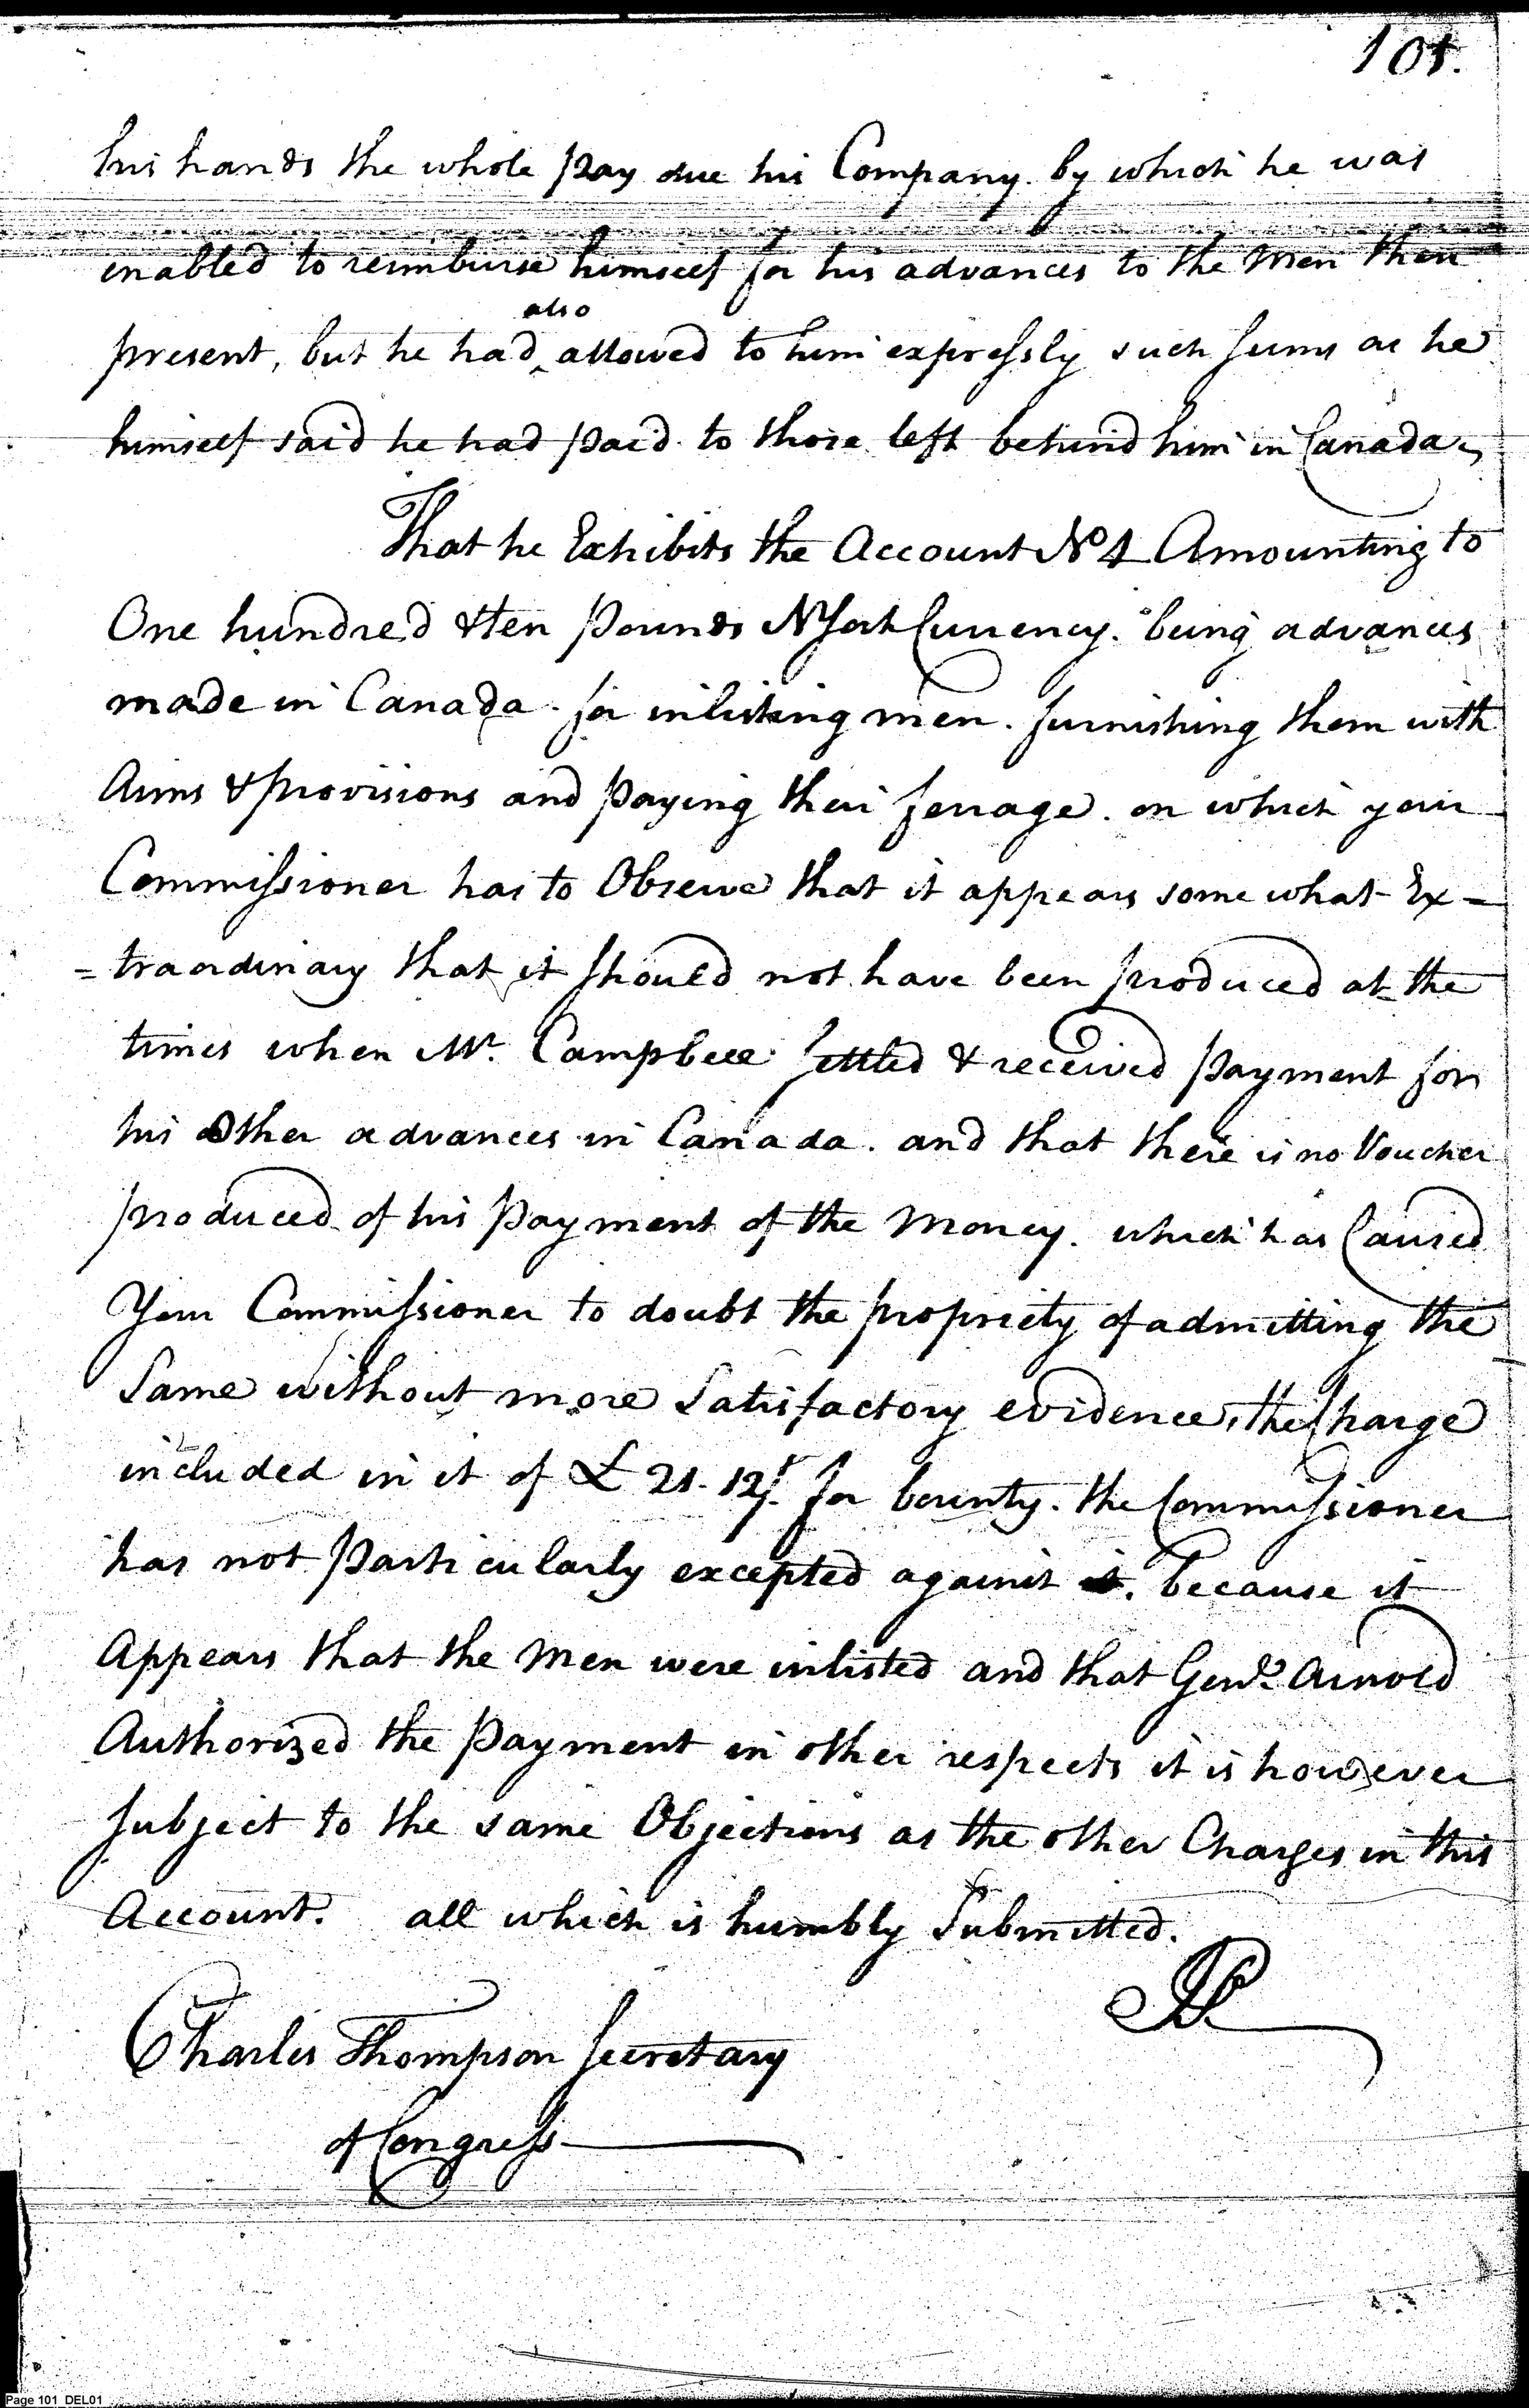 101.
his hands the whole pay due his Company. by which he was
enabled to reimburse himself for his advances to the Men then
also
present, but he had ^ allowed to him expressly such sums as he
himself said he had paid to those left behind him in Canada,
That he Exhibits the Account No 4 Amounting to
One hundred & ten pounds N York Currency. being advances
made in Canada. for inlisting men. furnishing them with
Arms & provisions and paying their ferrage. on which your
Commissioner has to Observe that it appears some what Ex=
=traordinary that it should not have been produced at the
times when Mr. Campbell settled & received payment for
his Other advances in Canada. and that there is no Voucher
produced of his payment of the Money. which has Caused
Your Commissioner to doubt the propriety of admitting the
Same without more Satisfactory evidence, the Charge
included in it of £ 21. 12/. for bounty. the Commissioner
has not particularly excepted against it. because it
Appears that the Men were inlisted and that Genl. Arnold
Authorized the payment in other respects it is however
subject to the same Objections as the other Charges in this
Account. all which is humbly Submitted.
Charles Thompson Secretary
of Congress
Page 101 DEL01